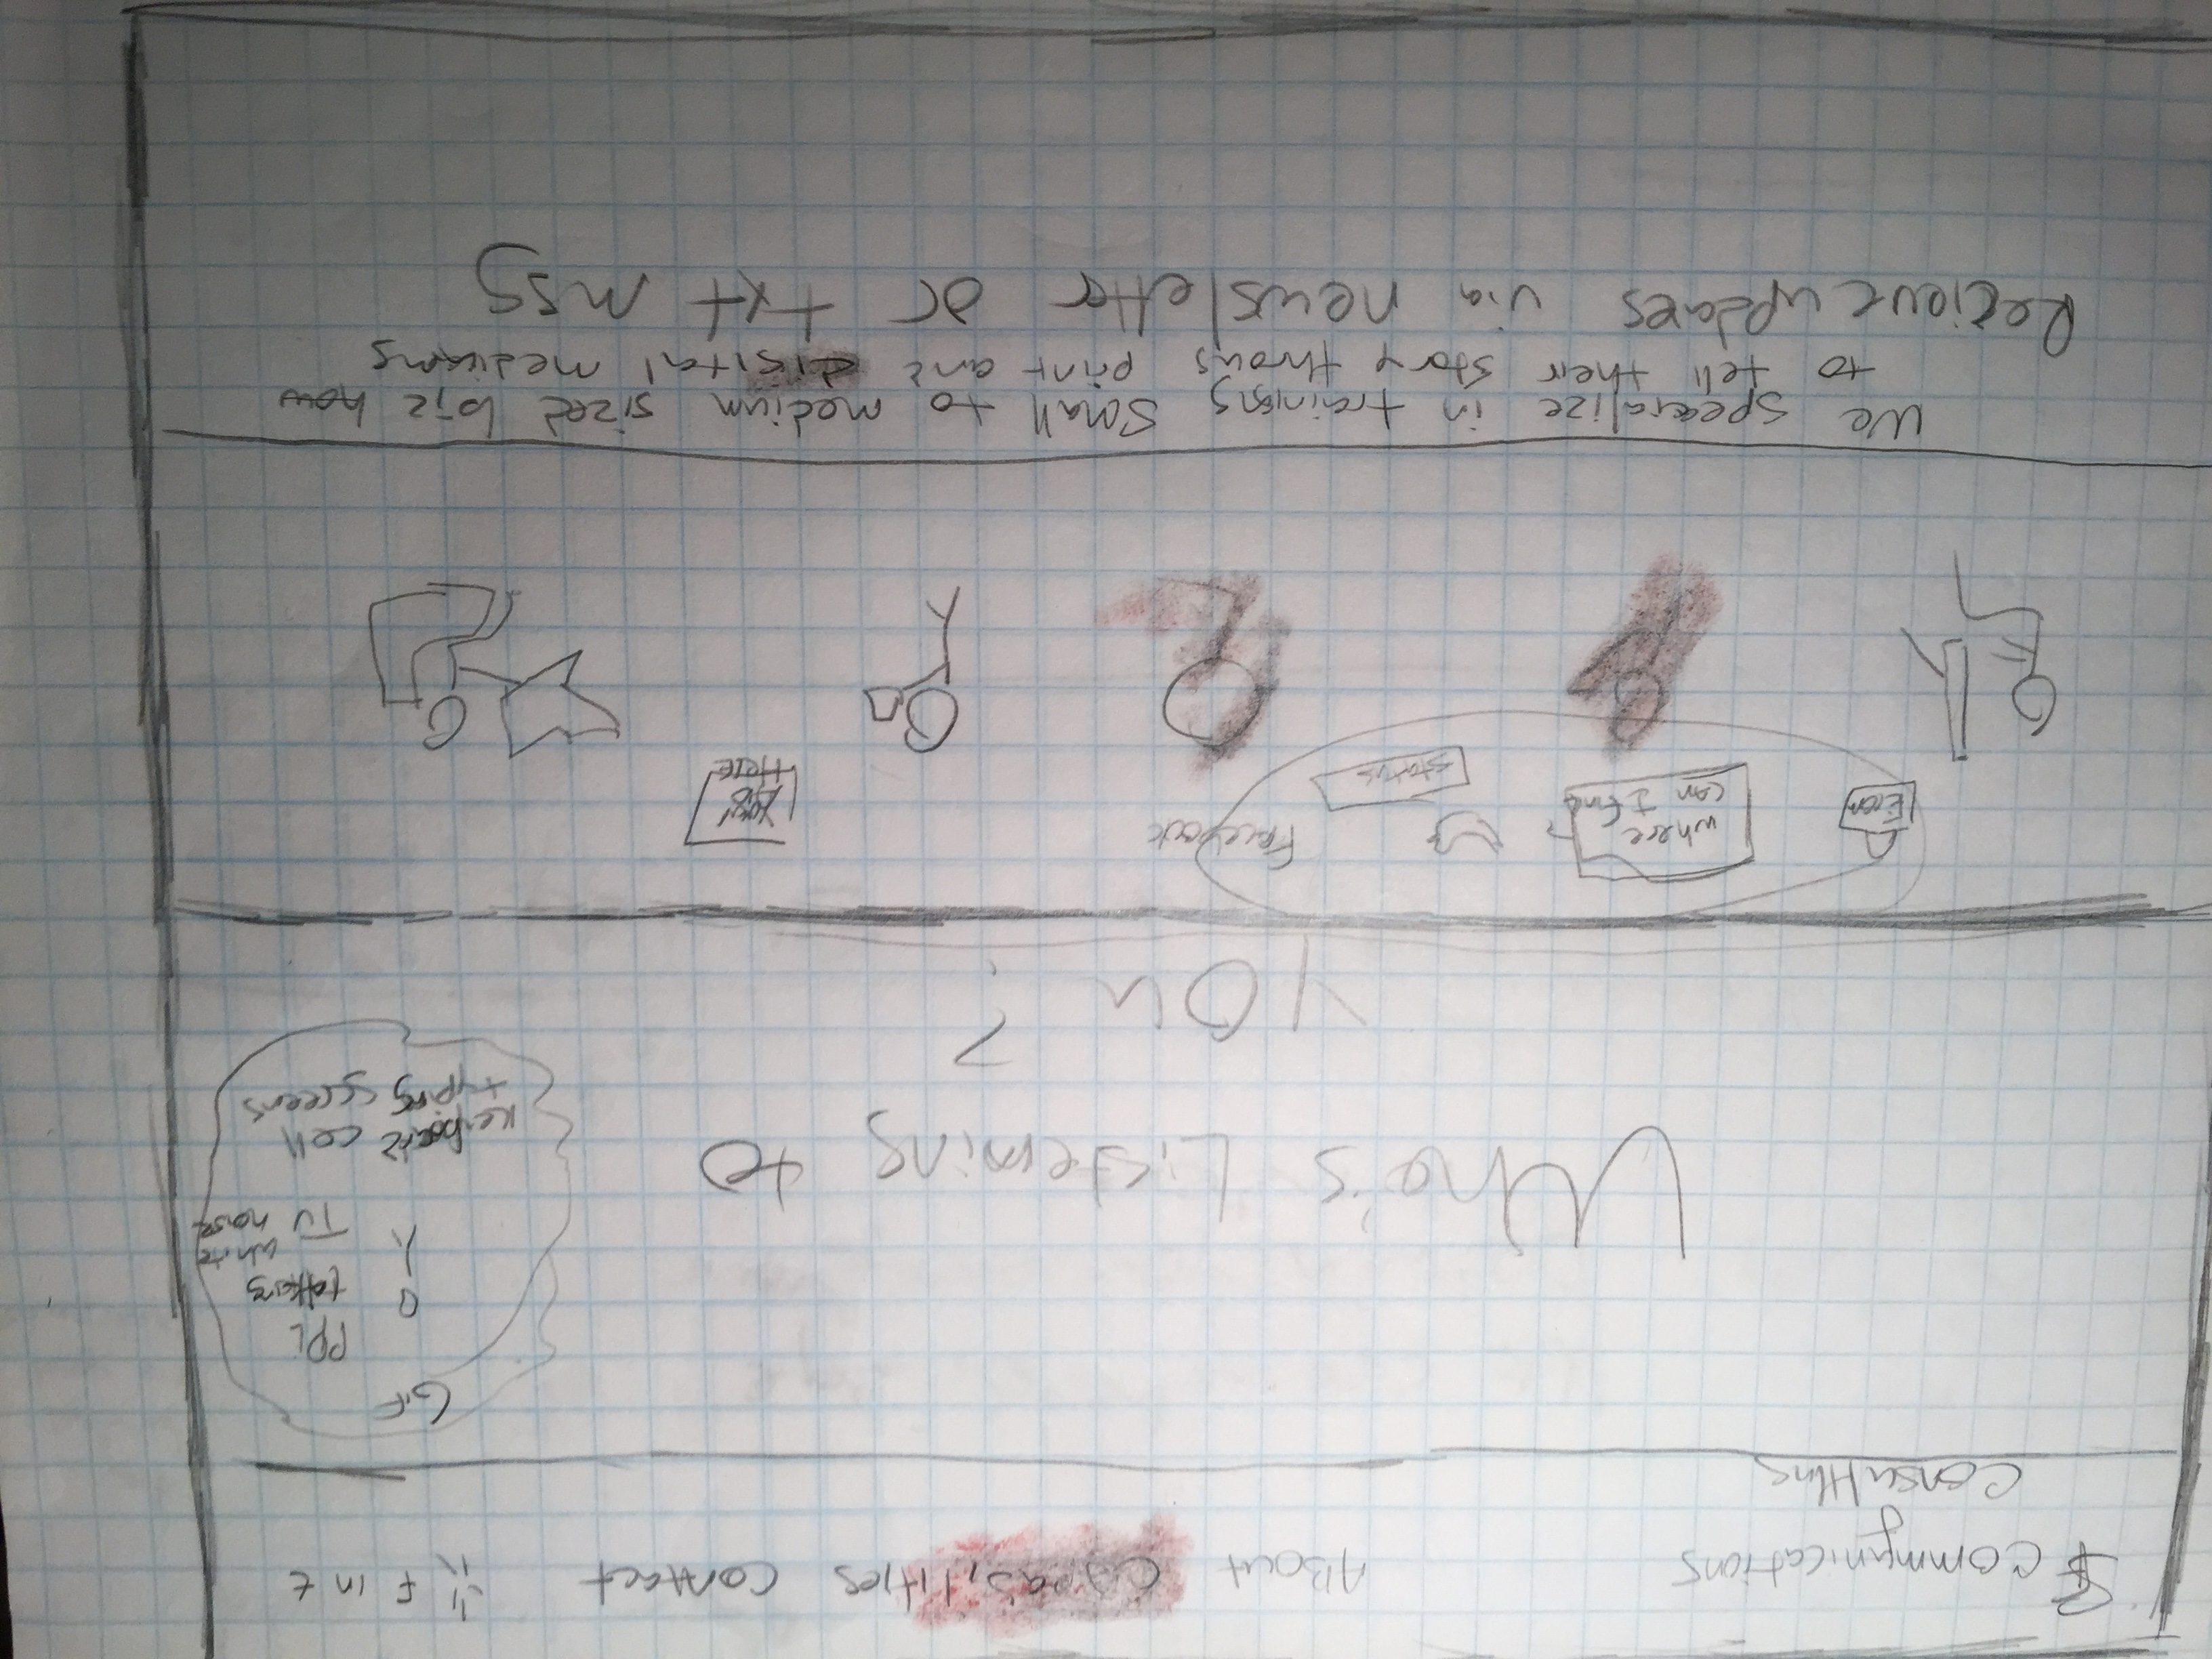 Communications
Consulting
About Capabilities Contact f in t
GIF
PPL
talking
TV white
house
Keyboard cell
typing screens
Who's Listening to
You?
Email
where
can I find
Status
Facebook
Your
AD
HERE
We specialize in training Small to medium sized how
to tell their story throug print and digital mediums
Recieve updates via newsletter or txt msg